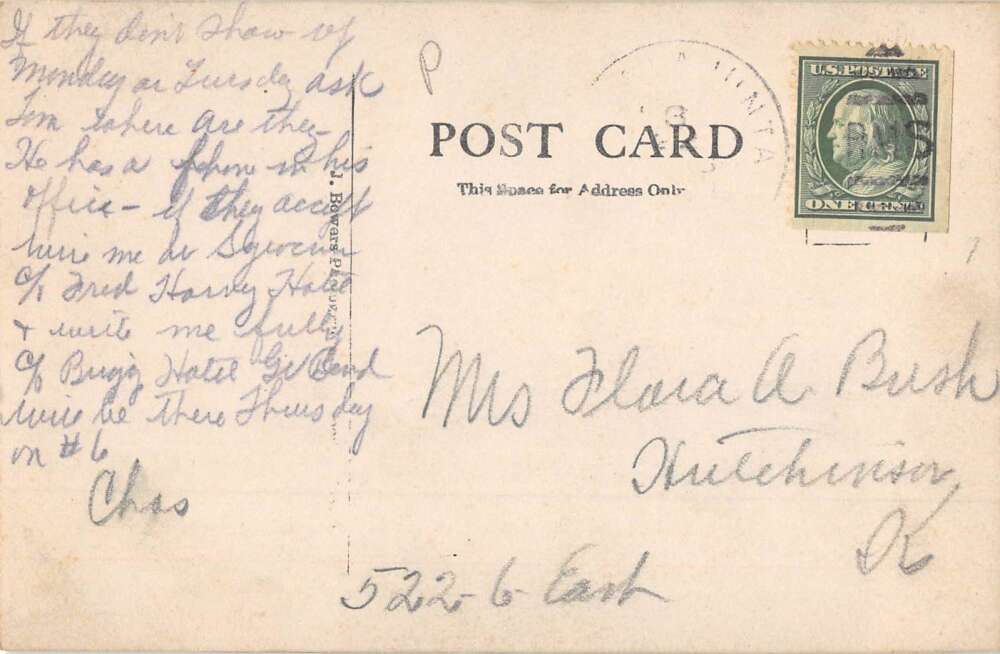 If they dont show up
Monday or Tuesday ask
Tom where are they
He has a phone in his
office - if they accept
wire me at
c/o Fred Harvey Hotel
& write me fully
c/o Hotel Gt Bend
will be there Thursday
on #6
Chas
J. Bowers
P
POST CARD
This Space for Address Only
U.S. POSTAGE
ONE CENT
RMS
Mrs Flora A Bush
Hutchinson,
Ks
522-6- East